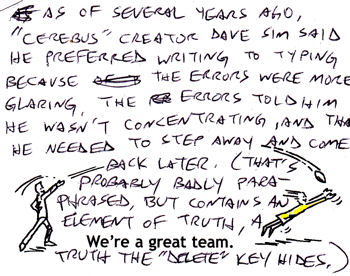 AS OF SEVERAL YEARS AGO,
"CEREBUS" CREATOR DAVE SIM SAID
HE PREFERRED WRITING TO TYPING
BECAUSE THE ERRORS WERE MORE
GLARING, THE ERRORS TOLD HIM
HE WASN'T CONCENTRATING, AND THA
HE NEEDED TO STEP AWAY AND COME
BACK LATER. (THAT'S
PROBABLY BADLY PARA-
PHRASED, BUT CONTAINS AN
ELEMENT OF TRUTH, A
We're a great team.
TRUTH THE "DELETE" KEY HIDES.)